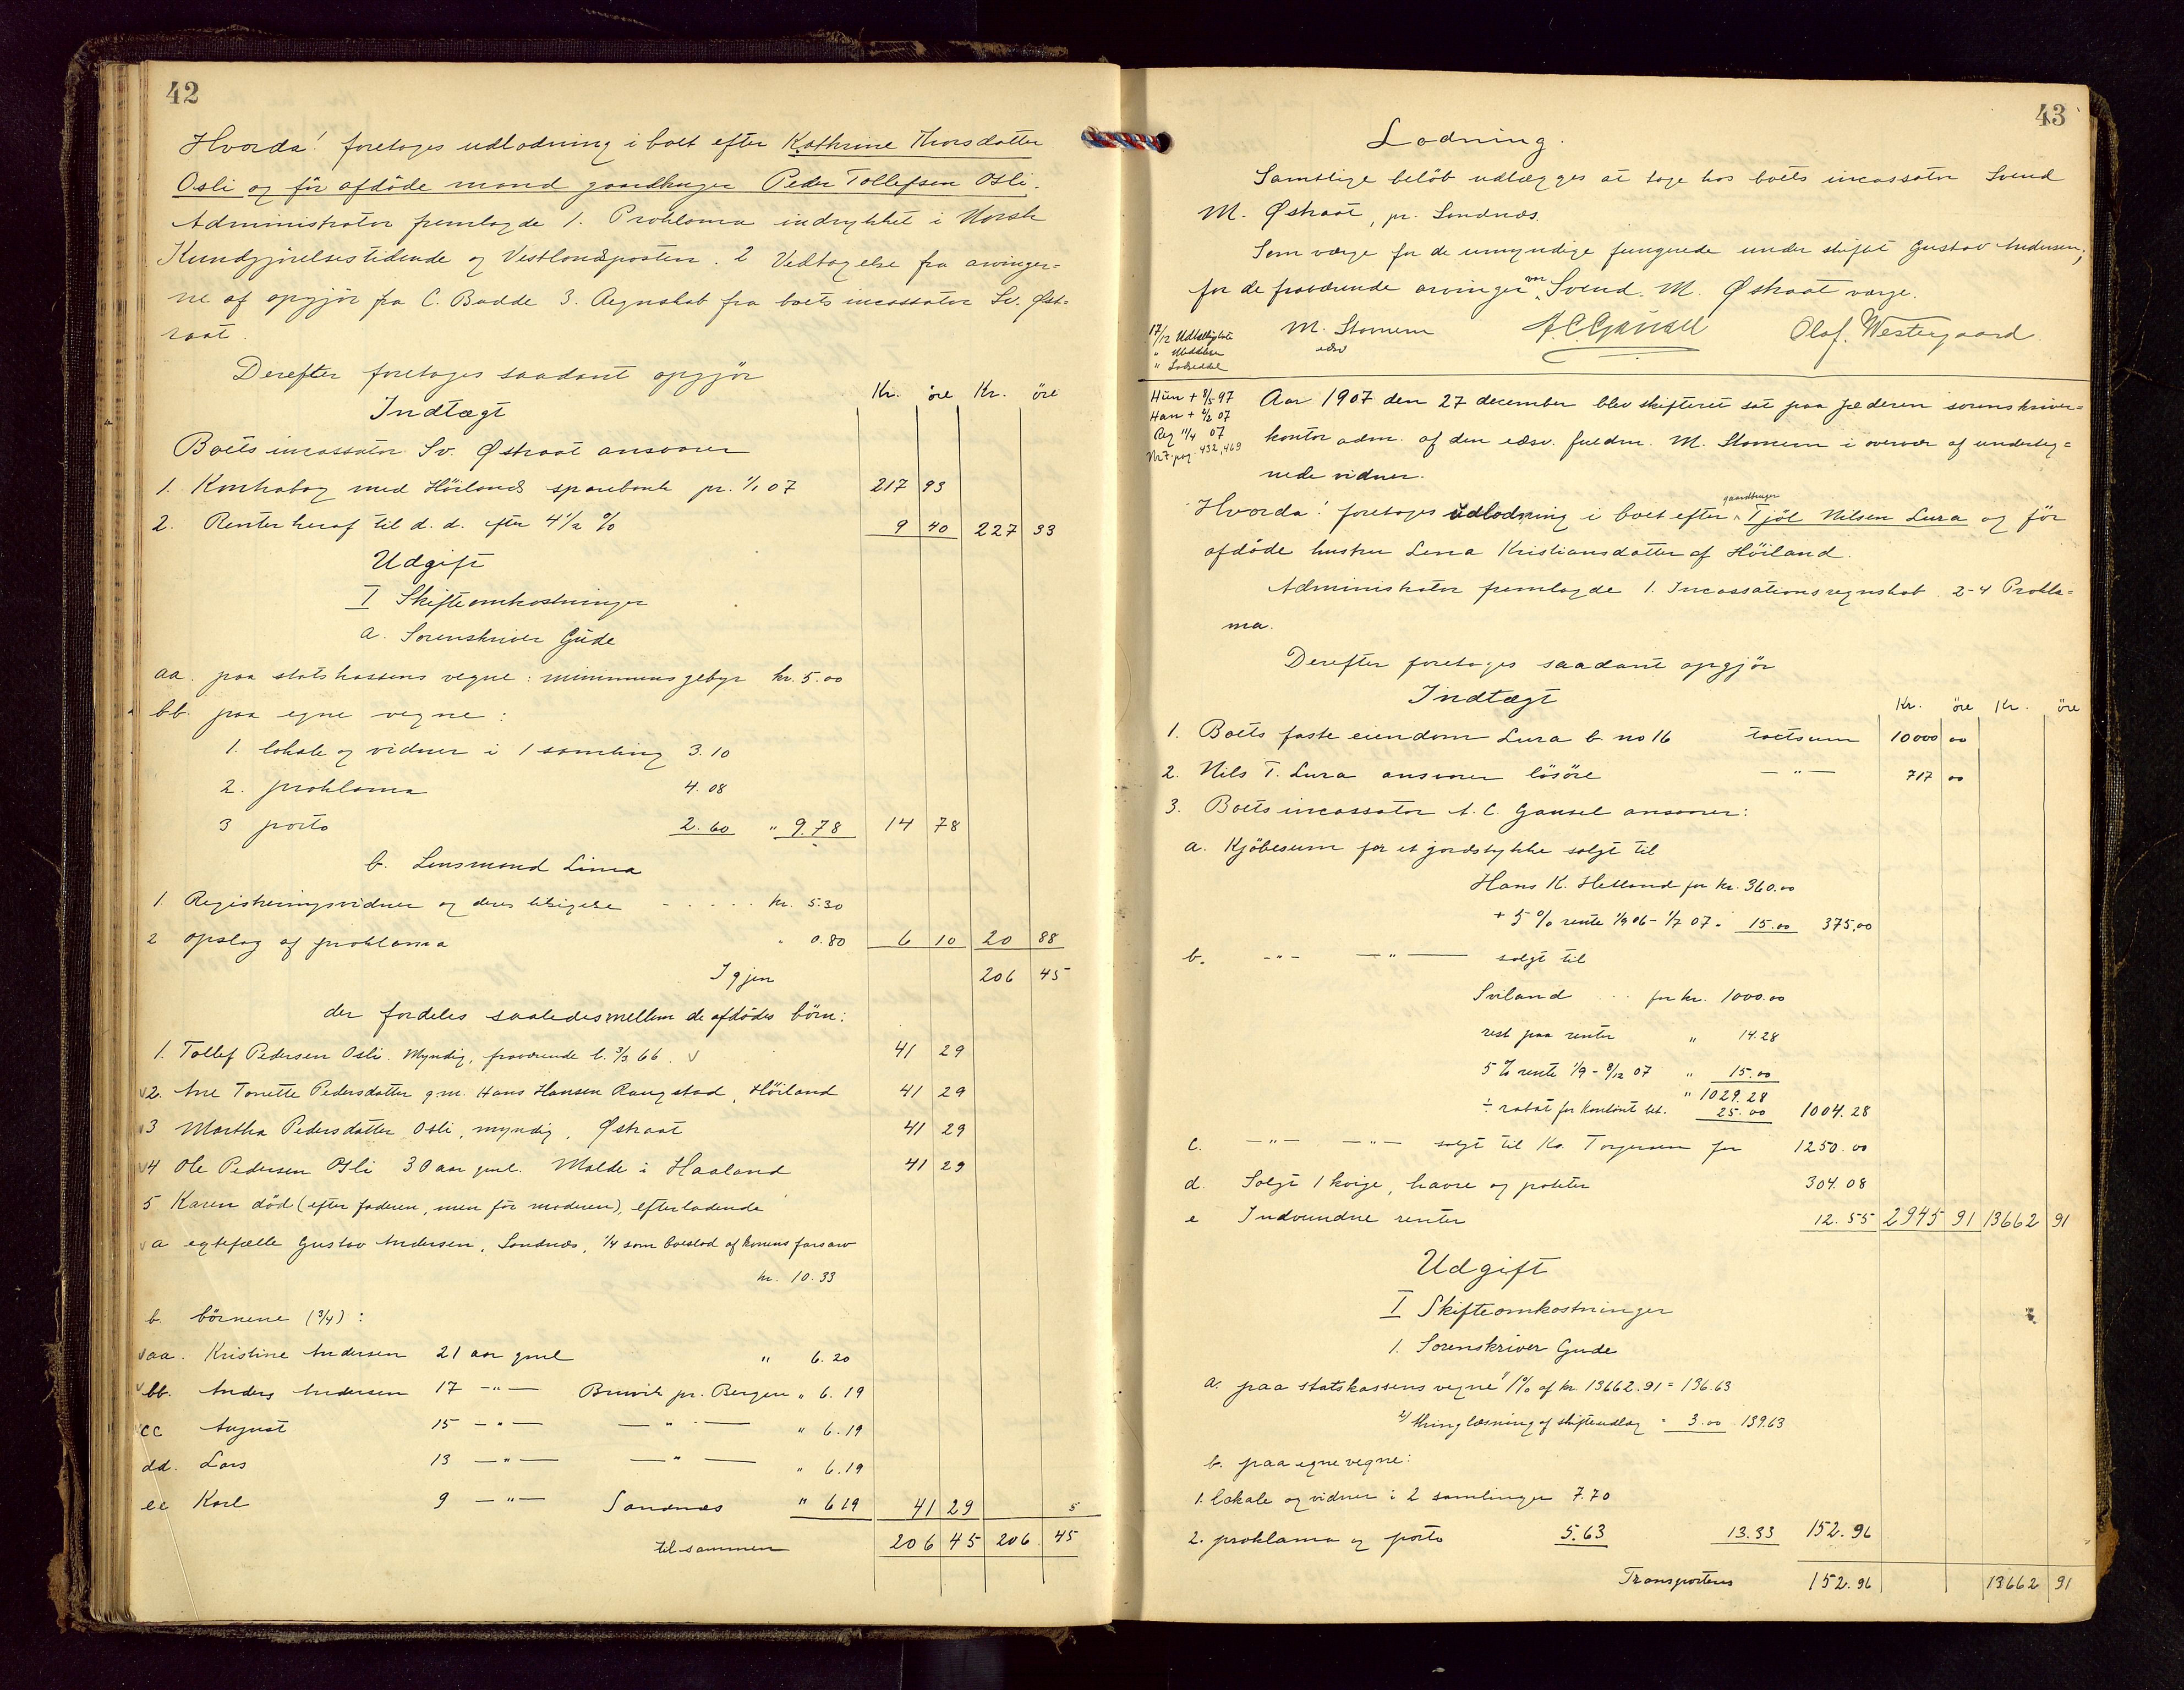 42
Hvorda! foretoges udlodning i boet efter Kathrine Thorsdatter
Osli og för afdöde mand gaardbruger Peder Tollefsen Osli.
Administrator fremlagde 1. Proklama indrykket i Norsk
Kundgjörelsestidende og Vestlandsposten. 2 Vedtagelse fra arvinger=
ne af opgjör fra C. Budde 3. Regnskab fra boets incassator Sv. Øst=
raat.
Derefter foretoges saadant opgjör
Kr. öre Kr. öre
Indtægt
Boets incassator Sv. Østraat ansvarer
1. Kontrabog med Höilands sparebank pr. 1/1 07 217 93
2. Renter heraf til d. d. efter 4 1/2 % 9 40 227 33
Udgift
I Skifteomkostninger
a. Sorenskriver Gude
aa. paa statskassens vegne: minimumsgebyr kr. 5.00
bb. paa egne vegne:
1. lokale og vidner i 1 samling 3.10
2. proklama 4.08
3 porto 2.60 " 9.78 14 78
b. Lensmand Lima
1 Registreringsvidner og deres tilsigelse - . . . . . kr. 5.30
2 opslag af proklama " 0.80 6 10 20 88
Igjen 206 45
der fordeles saaledes mellem de afdödes börn:
1. Tollef Pedersen Osli. Myndig, fraværende b. 3/3 66. v 41 29
v2. Ane Tonette Pedersdatter g.m. Hans Hansen Raugstad, Höiland 41 29
v3 Martha Pedersdatter Osli, myndig, Østraat 41 29
v4 Ole Pedersen Osli 30 aar gml. Malde i Haaland 41 29
5 Karen död (efter faderen, men för moderen), efterladende
va egtefælle Gustav Andersen, Sandnæs, 1/4 som boeslod af konens farsarv
kr. 10.33
b. börnene (3/4):
vaa. Kristine Andersen 21 aar gml " 6.20
vbb. Anders Andersen 17 -"- Bruvik pr. Bergen " 6.19
vcc August 15 -"- -"- " 6.19
dd. Lars 13 -"- -"- " 6.19
ee Karl 9 -"- Sandnæs " 6.19 41 29 5
tilsammen 206 45 206 45
43
Lodning.
Samtlige belöb udlægges at tage hos boets incassator Svend
M. Østraat, pr. Sandnæs.
Som værge for de umyndige fungerede under skiftet Gustav Andersen;
for de fraværende arvinger var Svend M. Østraat værge.
17/12 M. Stamem A. C. Gausel Olaf. Westergaard
" Meddelelse edsv
" Lodseddel
Hun + 8/5 97 Aar 1907 den 27 december blev skifteret sat paa Jæderen sorenskriver=
Han + 4/2 07
Reg 11/4 07 kontor adm. af den edsv. fuldm. M. Stamem i overvær af underteg=
Nr 7. pag. 432, 469
nede vidner.
Hvorda! foretoges udlodning i boet efter gaardbruger Tjöl Nilsen Lura og för
afdöde hustru Lena Kristiansdatter af Höiland.
Administrator fremlagde 1. Incassationsregnskab. 2-4 Prokla=
ma.
Derefter foretoges saadant opgjör
Indtægt
Kr. öre Kr. öre
1. Boets faste eiendom Lura b. no 16 taxtsum 10000 00
2. Nils T. Lura ansvarer lösöre -"- 717 00
3. Boets incassator A. C. Gausel ansvarer:
a. Kjöbesum for et jordstykke solgt til
Hans K. Hetland for kr. 360.00
+ 5 % rente 1/9 06 - 1/7 07 " 15.00 375.00
b. -"- -"- solgt til
Sviland . . for kr. 1000.00
rest paa renter " 14.28
5 % rente 1/9 - 8/12 07 " 15.00
" 1029.28
÷ rabat for kontant bet. 25.00 1004.28
c. -"- -"- solgt til Ka. Torgersen for 1250.00
d. Solgt 1 kvige, havre og poteter 304.08
e Indvundne renter 12.55 2945 91 13662 91
Udgift
I Skifteomkostninger
1. Sorenskriver Gude
a. paa statskassens vegne 1) 1% af kr. 13662.91 = 136.63
2) thinglæsning af skifteudlæg " 3.00 139.63
b. paa egne vegne:
1. lokale og vidner i 2 samlinger 7.70
2. proklama og porto 5.63 13.33 152.96
Transporteres 152.96 13662 91